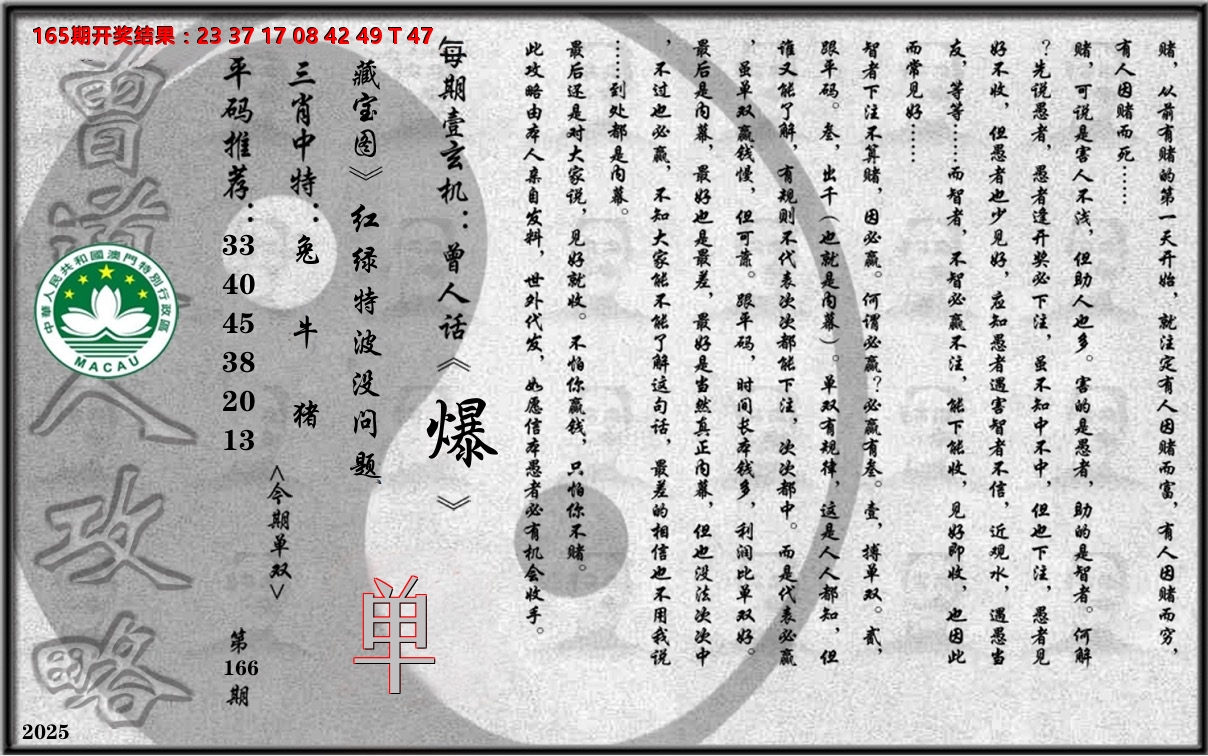 165期开奖结果：23 37 17 08 42 49 T 47
赌，从前有赌的第一天开始，就注定有人因赌而富，有人因赌而穷，
有人因赌而死……
赌，可说是害人不浅，但助人也多。害的是愚者，助的是智者。何解
？先说愚者，愚者逢开奖必下注，虽不知中不中，但也下注，愚者见
好不收，但愚者也少见好，应知愚者遇害智者不信，近观水，遇愚当
友，等等……而智者，不智必赢不注，能下能收，见好即收，也因此
而常见好……
智者下注不算赌，因必赢。何谓必赢？必赢有叁。壹，搏单双。贰，
跟平码。叁，出千（也就是内幕）。单双有规律，这是人人都知，但
谁又能了解，有规则不代表次次都能下注，次次都中。而是代表必赢
，虽单双赢钱慢，但可靠。跟平码，时间长本钱多，利润比单双好。
最后是内幕，最好也是最差，最好是当然真正内幕，但也没法次次中
，不过也必赢，不知大家能不能了解这句话，最差的相信也不用我说
……到处都是内幕。
最后还是对大家说，见好就收。不怕你赢钱，只怕你不赌。
此攻略由本人亲自发料，世外代发，如愿信本愚者必有机会收手。
每期壹玄机：曾人话《爆》
藏宝图》红绿特波没问题
单
三肖中特：兔 牛 猪
<今期单双>
平码推荐：33 40 45 38 20 13
第166期
曾道人攻略
中華人民共和國澳門特別行政區
MACAU
2025